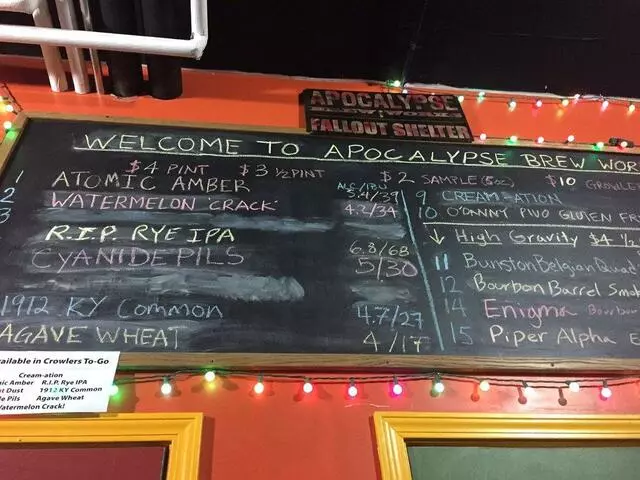 APOCALYPSE
FALLOUT SHELTER
WELCOME TO APOCALYPSE BREW WOR
$4 PINT $3 ½ PINT
$2 SAMPLE (5oz) $10 GROWLE
ALC/IBU
1 ATOMIC AMBER 5.4/39
2 WATERMELON 'CRACK' 4.2/34
3
R.I.P. RYE IPA 6.8/68
CYANIDE PILS 5/30
1912 KY COMMON 4.7/27
AGAVE WHEAT 4/17
9 CREAM-ATION
10 O'DANNY PUO GLUTEN FR
↓ HIGH GRAVITY $4 ½
11 Bunston Belgian Quad
12 Bourbon Barrel Smok
14 Enigma Bourbon
15 Piper Alpha E
vailable in Crowlers To-Go
Cream-ation
ic Amber R.I.P. Rye IPA
t Dust 1912 KY Common
e Pils Agave Wheat
Watermelon Crack!